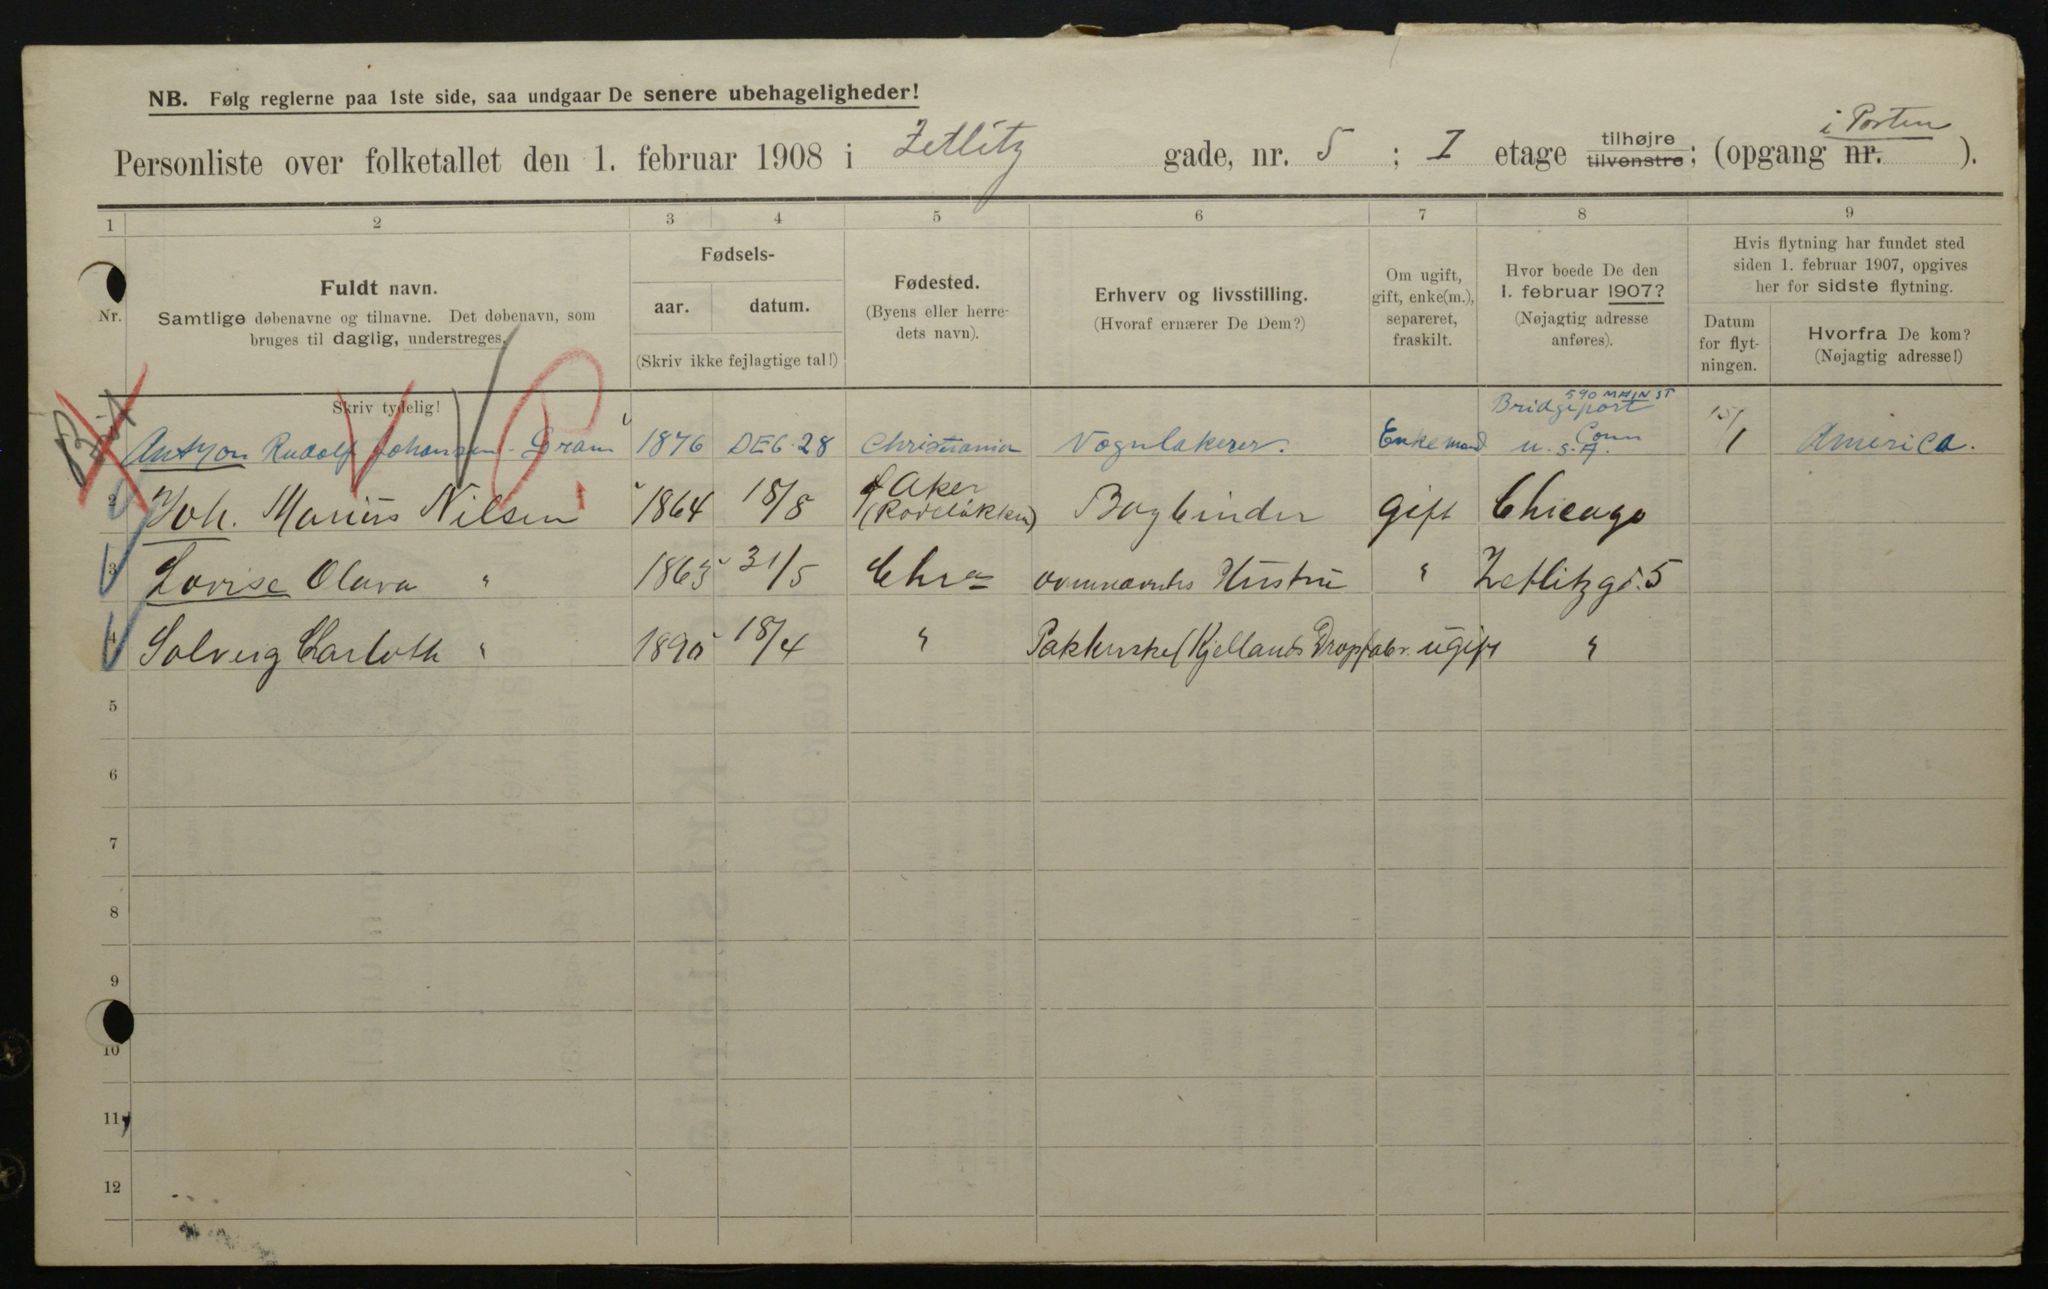 NB. Følg reglerne paa 1ste side, saa undgaar De senere ubehageligheder!
Personliste over folketallet den 1. februar 1908 i Zetlitz gade, nr. 5 ; I etage tilhøjre tilvenstre; (opgang nr. i Porten ).
1 2 3 4 5 6 7 8 9
Nr.
Fuldt navn.
Samtlige døbenavne og tilnavne. Det døbenavn, som
bruges til daglig, understreges.
Skriv tydelig!
Fødsels-
aar. datum.
(Skriv ikke fejlagtige tal!)
Fødested.
(Byens eller herre-
dets navn).
Erhverv og livsstilling.
(Hvoraf ernærer De Dem?)
Om ugift,
gift, enke(m.),
separeret,
fraskilt.
Hvor boede De den
1. februar 1907?
(Nøjagtig adresse
anføres).
Hvis flytning har fundet sted
siden 1. februar 1907, opgives
her for sidste flytning.
Datum
for flyt-
ningen.
Hvorfra De kom?
(Nøjagtig adresse!)
Bort
590 MAIN ST
Bridgeport
Conn
Anthon Rudolf Johansen 1876 DEC. 28 Christiania Vognlakerer. Enkemand U.S.A. 15/1 America.
2 Joh. Marius Nilsen 1864 18/8 Aker (Rodeløkken) Bogbinder gift Chicago
3 Lovise Olava " 1863 31/5 Chra ovennævntes Hustru " Zetlitzgd. 5
4 Solveig Charloth " 1890 18/4 " Pakkerske (Kjellands Dropsfabr. ugift "
5
6
7
8
9
10
11
12